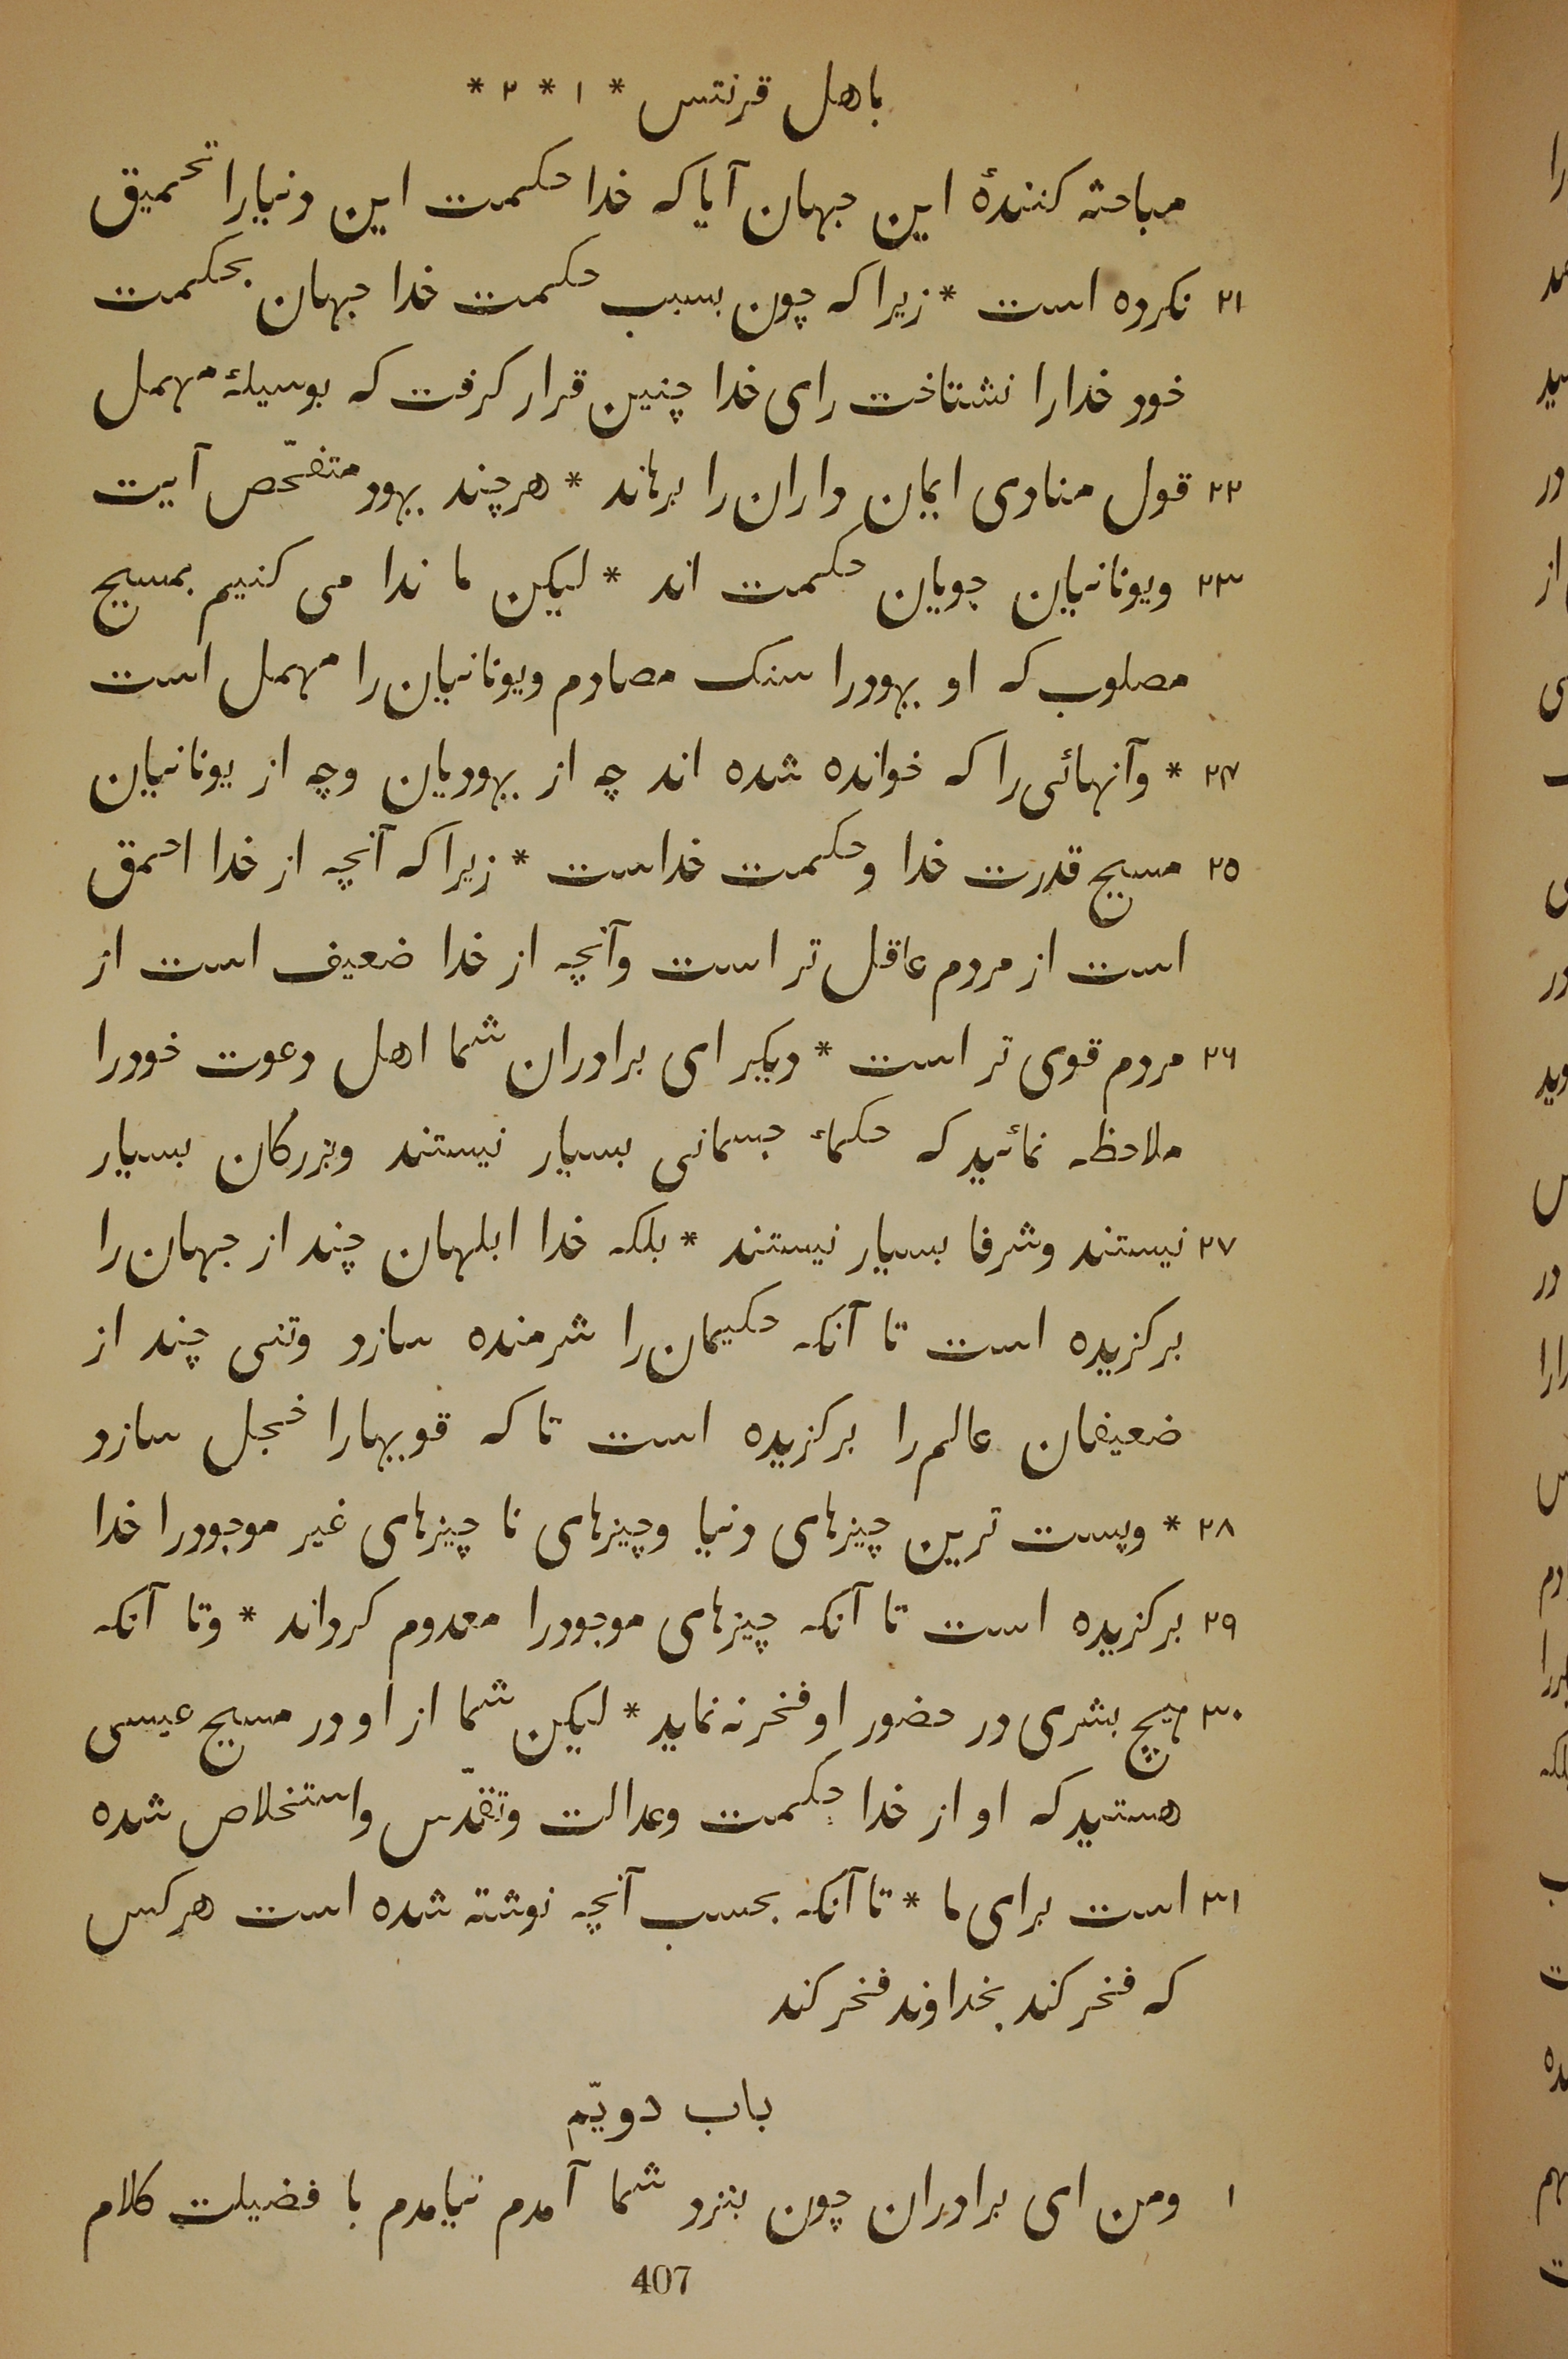 باهل قرنتس * ۱ * ۲ *
مباحثه کنندهٔ این جهان آیا که خدا حکمت این دنیارا تحمیق
۲۱ نکرده است * زیرا که چون بسبب حکمت خدا جهان بحکمت
خود خدارا نشناخت رای خدا چنین قرار کرفت که بوسیلهٔ مهمل
۲۲ قول منادی ایمان داران را برهاند * هرچند یهود متفحّص آیت
۲۳ ویونانیان جویان حکمت اند * لیکن ما ندا می کنیم بمسیح
مصلوب که او یهودرا سنک مصادم ویونانیان را مهمل است
۲۴ * وآنهائی را که خوانده شده اند چه از یهودیان وچه از یونانیان
۲۵ مسیح قدرت خدا وحکمت خداست * زیرا که آنچه از خدا احمق
است از مردم عاقل تر است وآنچه از خدا ضعیف است از
۲۶ مردم قوی تر است * دیکر ای برادران شما اهل دعوت خودرا
ملاحظه نمائید که حکماء جسمانی بسیار نیستند وبزرکان بسیار
۲۷ نیستند وشرفا بسیار نیستند * بلکه خدا ابلهان چند از جهان را
برکزیده است تا آنکه حکیمان را شرمنده سازد وتنی چند از
ضعیفان عالم را برکزیده است تا که قویهارا خجل سازد
۲۸ * وپست ترین چیزهای دنیا وچیزهای نا چیزهای غیر موجودرا خدا
۲۹ برکزیده است تا آنکه چیزهای موجودرا معدوم کرداند * وتا آنکه
۳۰ هیچ بشری در حضور او فخر نه نماید * لیکن شما از او در مسیح عیسی
هستید که او از خدا حکمت وعدالت وتقدّس واستخلاص شده
۳۱ است برای ما * تا آنکه بحسب آنچه نوشته شده است هرکس
که فخر کند بخداوند فخر کند
باب دویّم
۱ ومن ای برادران چون بنزد شما آمدم نیامدم با فضیلت کلام
407